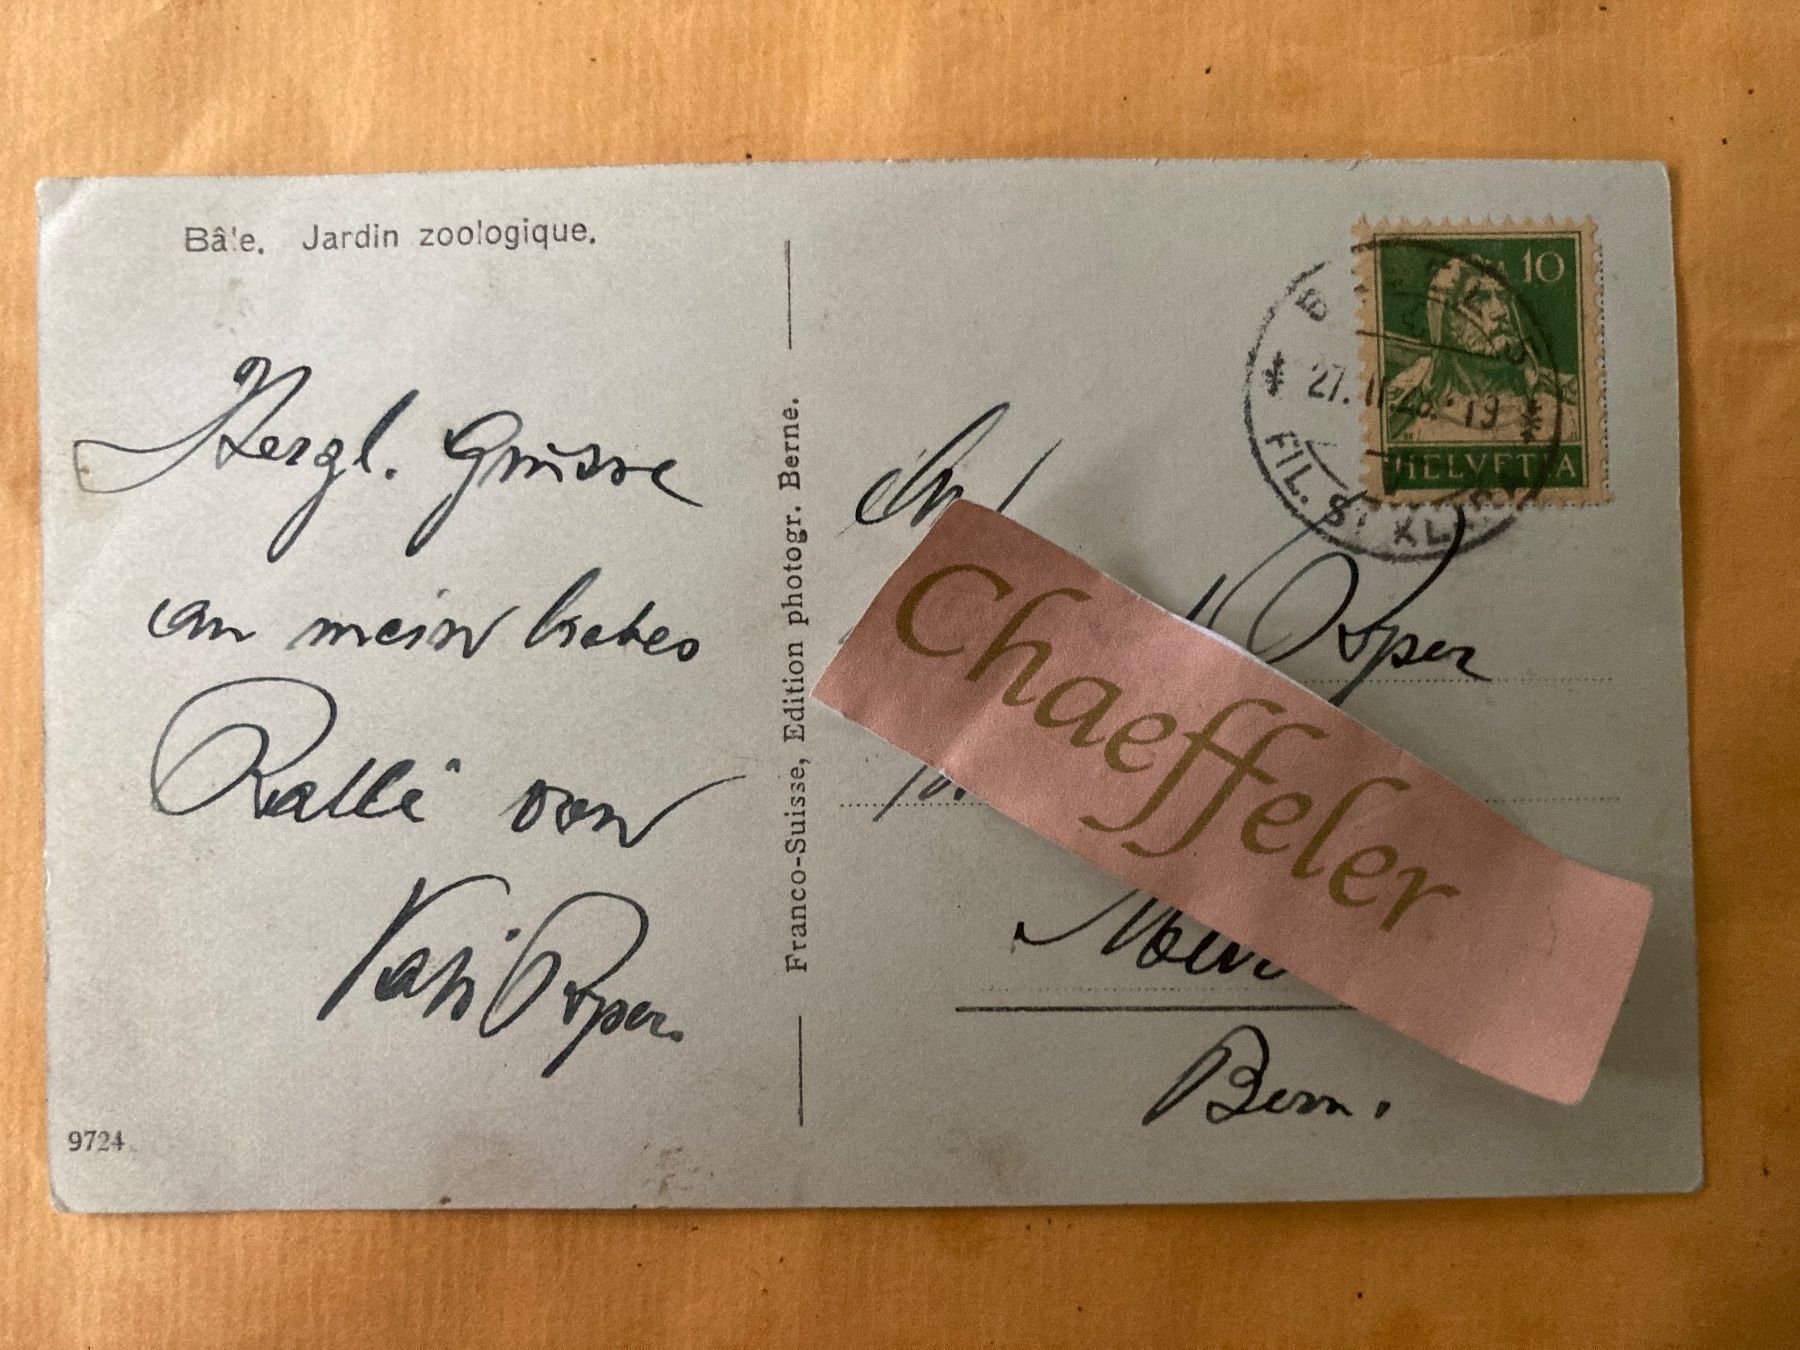 Bâle. Jardin zoologique.
Herzl. Grüsse
an mein liebes
von
Roper.
9724
Franco-Suisse, Edition photogr. Berne.
10
HELVETIA
27. 19
FIL. ST. KLARA
Roper
Chaeffeler
Bern.